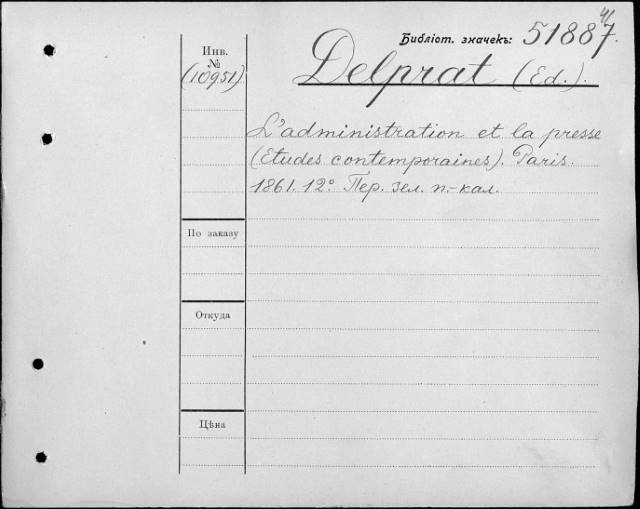 41
Библіот. значекъ: 51887.
Инв.
№
(10951)
Delprat (Ed.).
L'administration et la presse
(Etudes contemporaines). Paris.
1861. 12° Пер. зел. п.-кал.
По заказу
Откуда
Цѣна